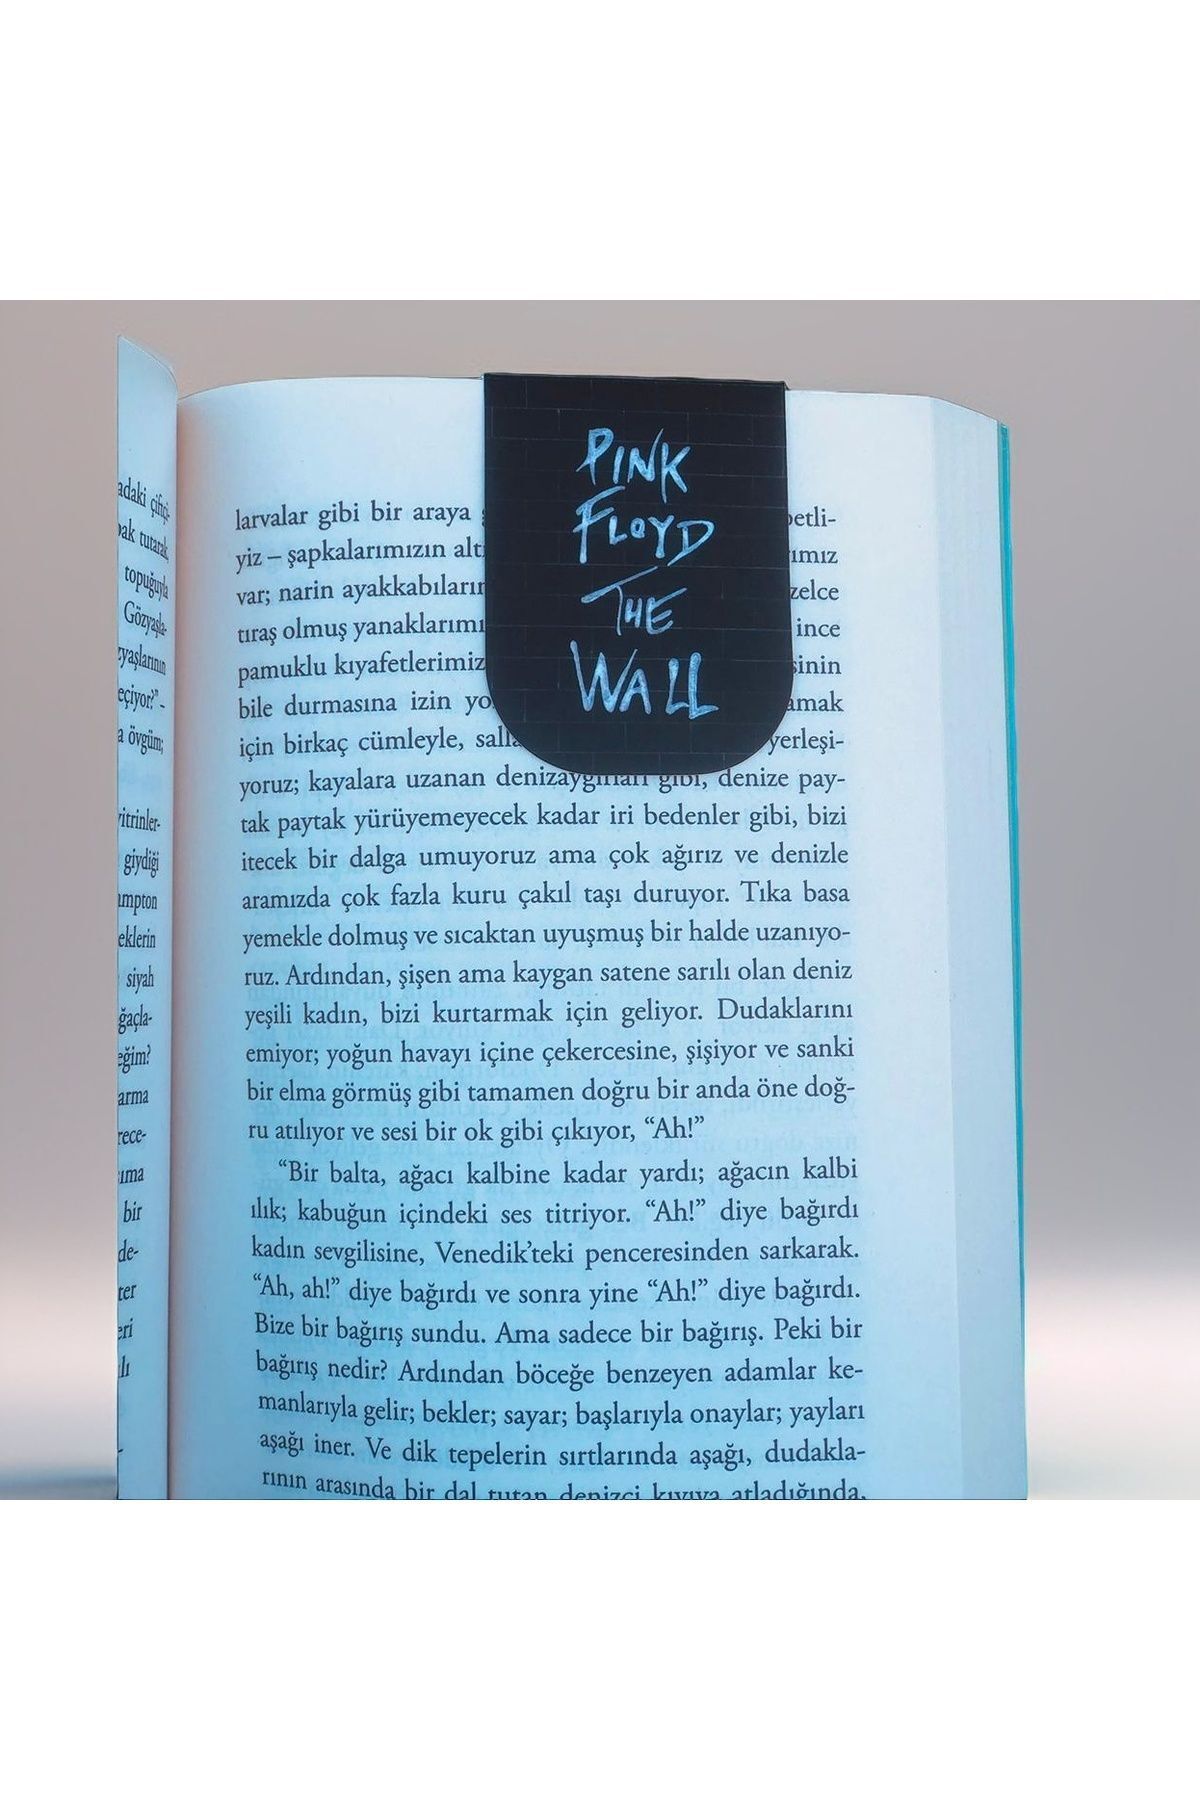 PINK
FLOYD
THE
WALL
adaki çiftçi-
tutarak,
topuğuyla
Gözyaşla-
zyaşlarının
eçiyor?" -
a övgüm;
vitrinler-
giydiği
ampton
eklerin
siyah
ğaçla-
eğim?
arma
rece-
bir
de-
larvalar gibi bir araya
yiz – şapkalarımızın
var; narin
tıraş olmuş yanaklarımı ince
pamuklu kıyafetlerimiz
bile durmasına izin
için birkaç cümleyle, yerleşi-
yoruz; kayalara uzanan denizaygırları gibi, denize pay-
tak paytak yürüyemeyecek kadar iri bedenler gibi, bizi
itecek bir dalga umuyoruz ama çok ağırız ve denizle
aramızda çok fazla kuru çakıl taşı duruyor. Tıka basa
yemekle dolmuş ve sıcaktan uyuşmuş bir halde uzanıyo-
ruz. Ardından, şişen ama kaygan satene sarılı olan deniz
yeşili kadın, bizi kurtarmak için geliyor. Dudaklarını
emiyor; yoğun havayı içine çekercesine, şişiyor ve sanki
bir elma görmüş gibi tamamen doğru bir anda öne doğ-
ru atılıyor ve sesi bir ok gibi çıkıyor, “Ah!”
“Bir balta, ağacı kalbine kadar yardı; ağacın kalbi
ılık; kabuğun içindeki ses titriyor. “Ah!” diye bağırdı
kadın sevgilisine, Venedik’teki penceresinden sarkarak.
“Ah, ah!” diye bağırdı ve sonra yine “Ah!” diye bağırdı.
Bize bir bağırış sundu. Ama sadece bir bağırış. Peki bir
bağırış nedir? Ardından böceğe benzeyen adamlar ke-
manlarıyla gelir; bekler; sayar; başlarıyla onaylar; yayları
aşağı iner. Ve dik tepelerin sırtlarında aşağı, dudakla-
rının arasında bir dal tutan denizci kıyıya atladığında,